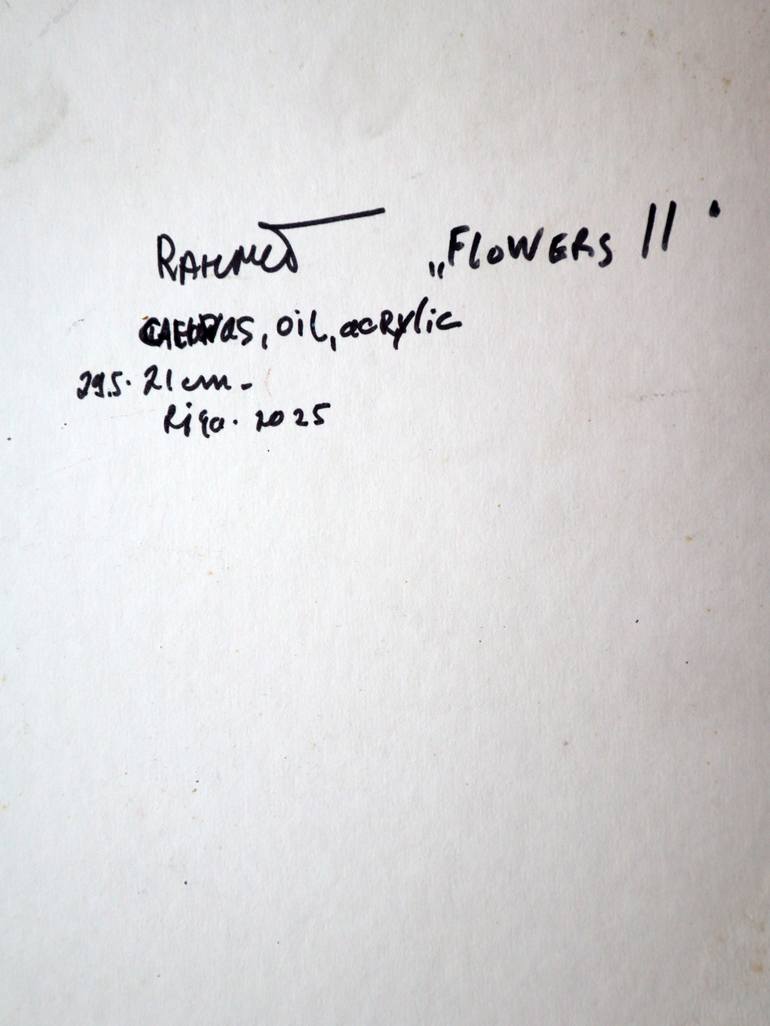 RAHMET „FLOWERS II"
oil, acrylic
29.5 · 21 cm -
Riga · 2025